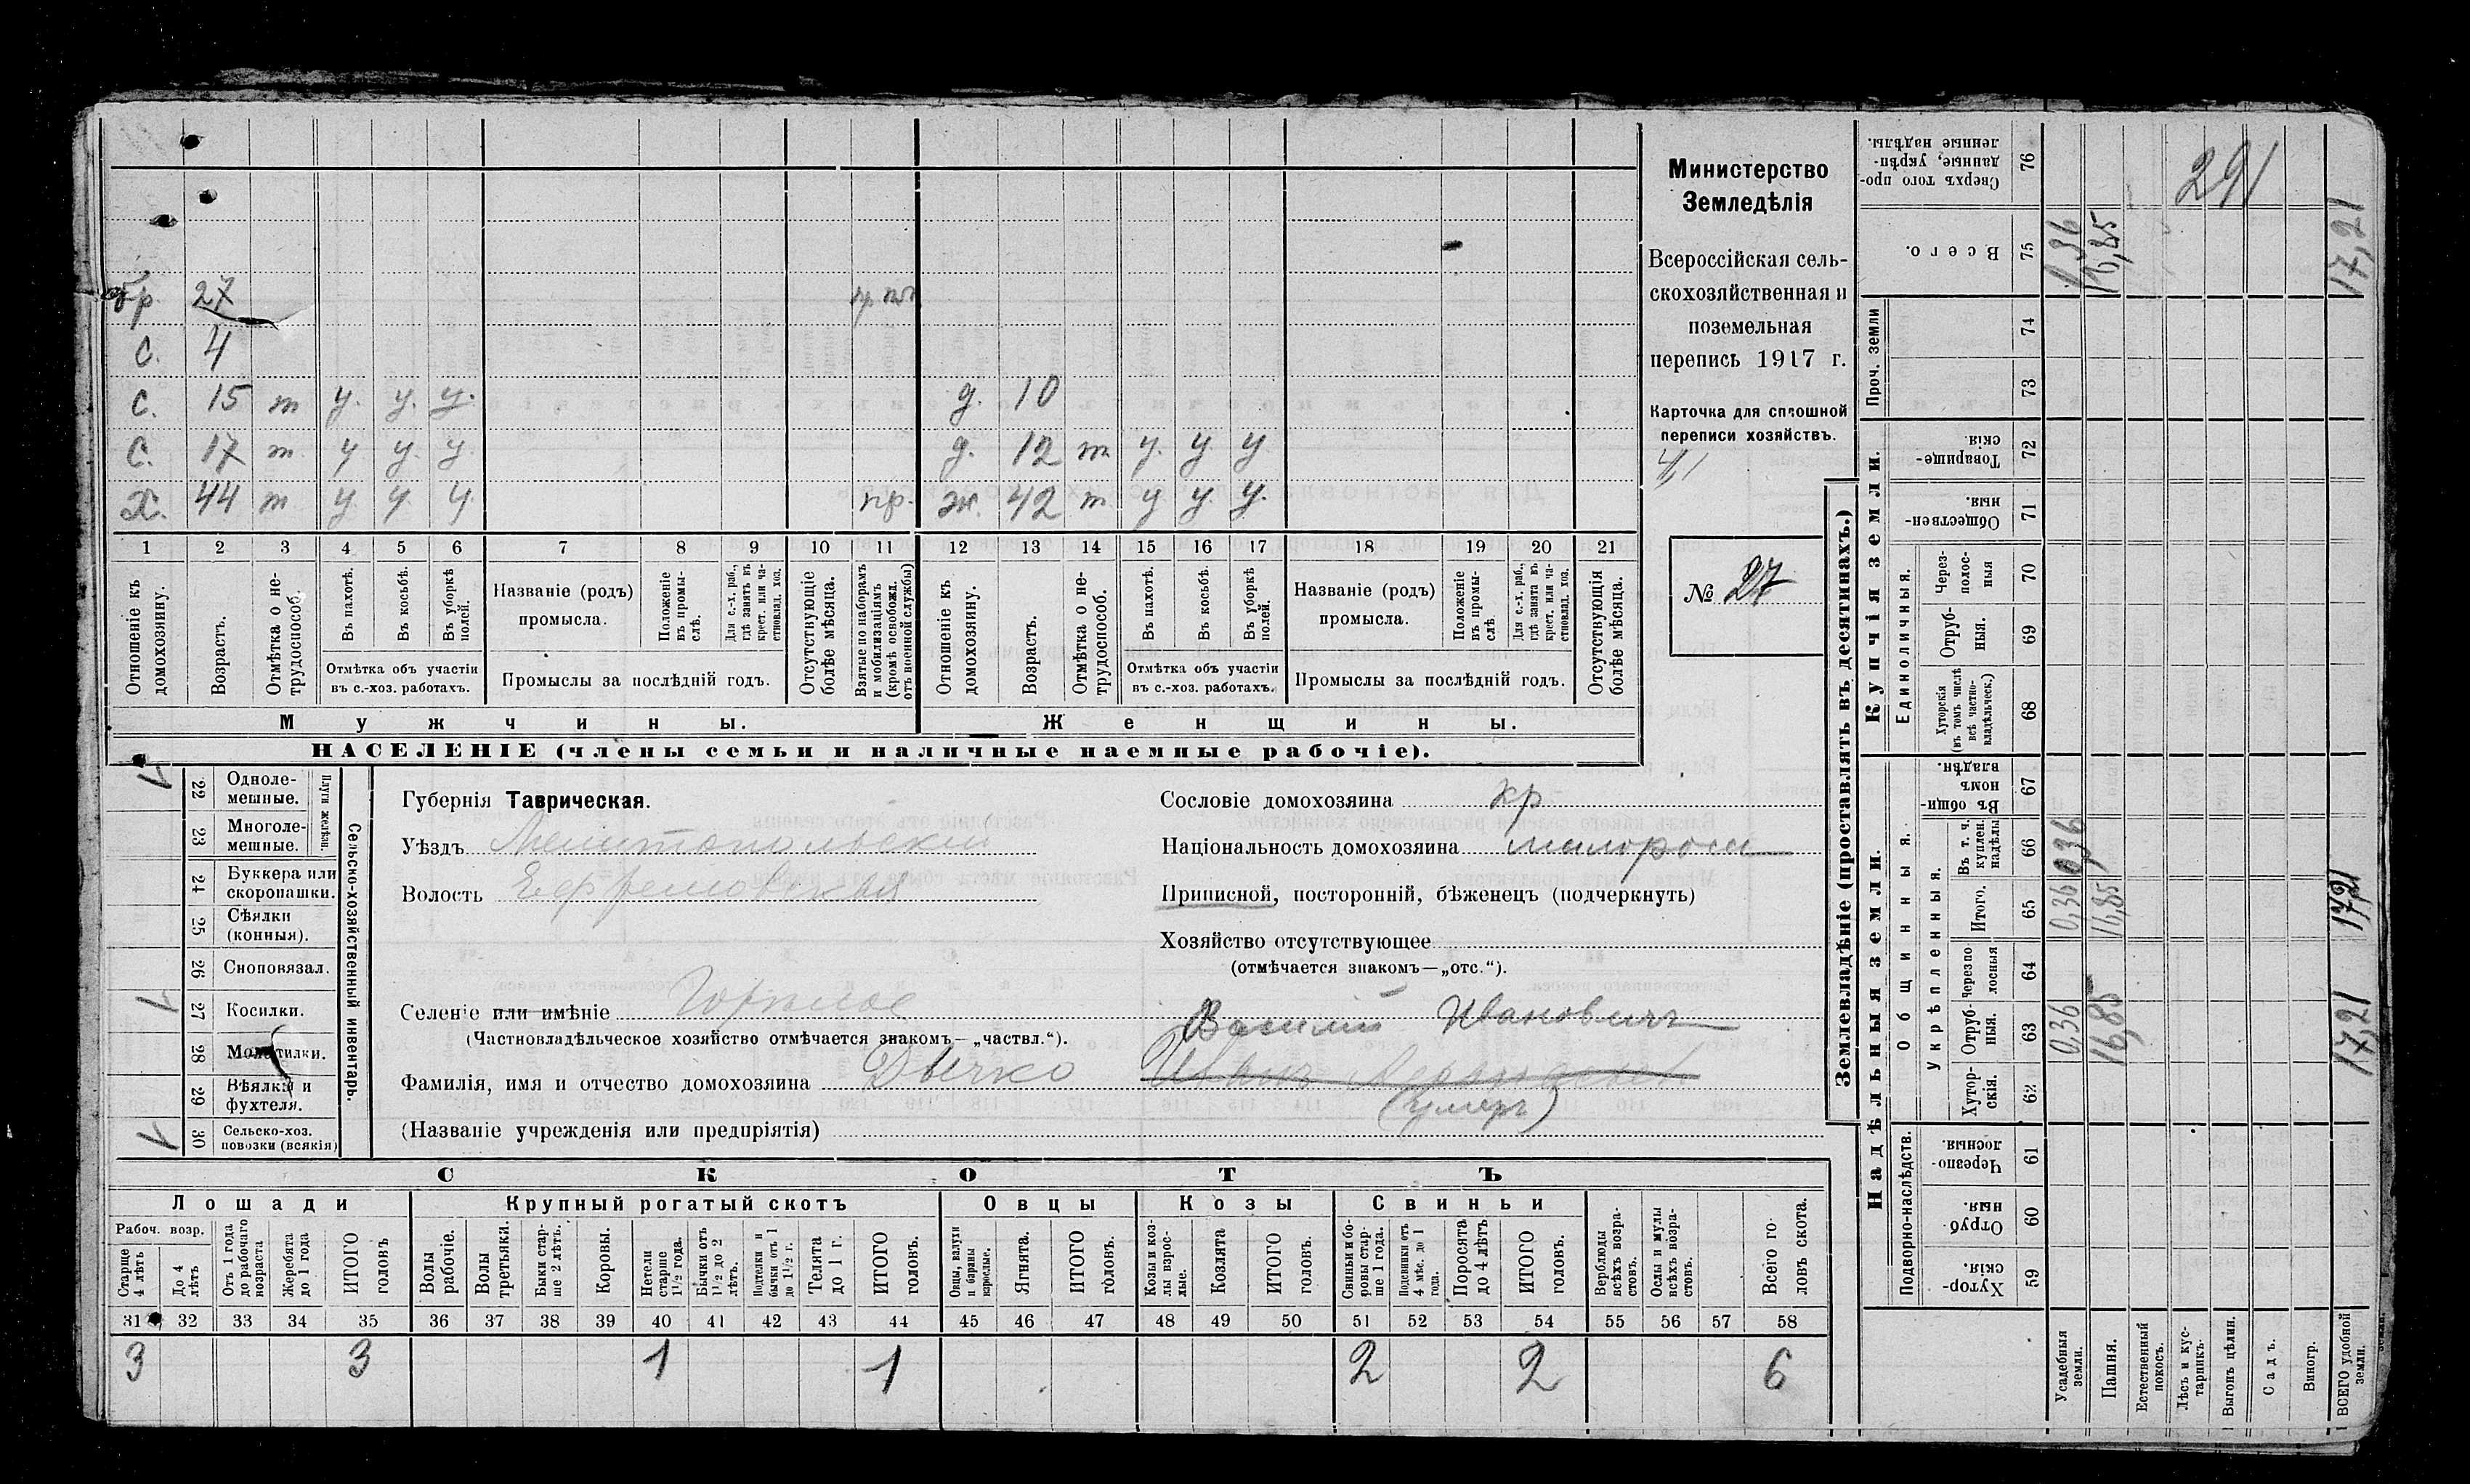 бр. 27
с. 4
с. 15 т у. у. у. д. 10
с. 17 т у у. у. д. 12 т у. у у
х. 44 т у. у. у. пр. ж. 42 т. у у. у.
1 2 3 4 5 6 7 8 9 10 11 12 13 14 15 16 17 18 19 20 21
Отношеніе къ домохозяину.
Возрастъ.
Отмѣтка о не-трудоспособ.
Въ пахотѣ.
Въ косьбѣ.
Въ уборкѣ полей.
Отмѣтка объ участіи
въ с.-хоз. работахъ.
Названіе (родъ)
промысла.
Положеніе въ промы-слѣ.
Для с.-х. раб., гдѣ занятъ въ крест. или ча-стновлад. хоз.
Промыслы за послѣдній годъ.
Отсутствующіе болѣе мѣсяца.
Взятые по наборамъ и мобилизаціямъ (кромѣ освобожд. отъ военной службы)
Отношеніе къ домохозяину.
Возрастъ.
Отмѣтка о не-трудоспособ.
Въ пахотѣ.
Въ косьбѣ.
Въ уборкѣ полей.
Отмѣтка объ участіи
въ с.-хоз. работахъ.
Названіе (родъ)
промысла.
Положеніе въ промы-слѣ.
Для с.-х. раб., гдѣ занята въ крест. или ча-стновлад. хоз.
Промыслы за послѣдній годъ.
Отсутствующія болѣе мѣсяца.
Мужчины. Женщины.
НАСЕЛЕНІЕ (члены семьи и наличные наемные рабочіе).
Министерство
Земледѣлія
Всероссійская сель-
скохозяйственная и
поземельная
перепись 1917 г.
Карточка для сплошной
переписи хозяйствъ.
№ 27
Сельско-хозяйственный инвентарь.
Плуги желѣзн.
22 Одноле-
мешные.
23 Многоле-
мешные.
24 Буккера или
скоропашки.
25 Сѣялки
(конныя).
26 Сноповязал.
27 Косилки.
28 Молотилки.
29 Вѣялки и
фухтеля.
30 Сельско-хоз.
повозки (всякія)
Губернія Таврическая.
Уѣздъ Мелитопольскій
Волость Ефремовская
Селеніе или имѣніе Горькое
(Частновладѣльческое хозяйство отмѣчается знакомъ—„частвл.“).
Фамилія, имя и отчество домохозяина
Василій Ивановичъ
Иванъ
(умеръ)
(Названіе учрежденія или предпріятія)
Сословіе домохозяина кр
Національность домохозяина малоросс
Приписной, посторонній, бѣженецъ (подчеркнуть)
Хозяйство отсутствующее
(отмѣчается знакомъ—„отс.“).
СКОТЪ
Лошади Крупный рогатый скотъ Овцы Козы Свиньи
Рабоч. возр.
Старше 4 лѣтъ
До 4 лѣтъ
Отъ 1 года до рабочаго возраста
Жеребята до 1 года
ИТОГО головъ
Волы рабочіе.
Волы третьяки.
Быки стар-ше 2 лѣтъ.
Коровы.
Нетели старше 1½ года.
Бычки отъ 1½ до 2 лѣтъ.
Подтелки и бычки отъ 1 до 1½ г.
Телята до 1 г.
ИТОГО головъ.
Овцы, валухи и бараны взрослые.
Ягнята.
ИТОГО головъ.
Козы и коз-лы взрос-лые.
Козлята
ИТОГО головъ.
Свиньи и бо-ровы стар-ше 1 года.
Подсвинки отъ 4 мѣс. до 1 года.
Поросята до 4 лѣтъ
ИТОГО головъ.
Верблюды всѣхъ возра-стовъ.
Ослы и мулы всѣхъ возра-стовъ.
Всего го-ловъ скота.
31 32 33 34 35 36 37 38 39 40 41 42 43 44 45 46 47 48 49 50 51 52 53 54 55 56 57 58
3 3 1 1 2 2 6
Землевладѣніе (проставлять въ десятинахъ.)
Купчія земли.
Надѣльныя земли.
Сверхъ того про-данные, укрѣп-ленные надѣлы. 76 291
Всего. 75 16,85 17,21
Проч. земли 74
73
Товарище-скія. 72
Обществен-ныя. 71
Единоличныя.
Через-полос-ныя 70
Отруб-ныя. 69
Хуторскія (въ томъ числѣ всѣ частно-владѣльческ.) 68
Общинныя.
Въ общин-номъ владѣн. 67
Укрѣпленныя.
Въ т. ч. куплен. надѣлы 66 0,36
Итого. 65 0,36 16,85 17,21
Черезпо-лосныя 64
Отруб-ныя. 63 0,36 16,85 17,21
Хутор-скія. 62
Подворно-наслѣдств.
Черезпо-лосныя. 61
Отруб-ныя. 60
Хутор-скія. 59
Усадебныя земли.
Пашня.
Естественный покосъ.
Лѣсъ и кус-тарникъ.
Выгонъ цѣлин.
Садъ.
Виногр.
ВСЕГО удобной земли.